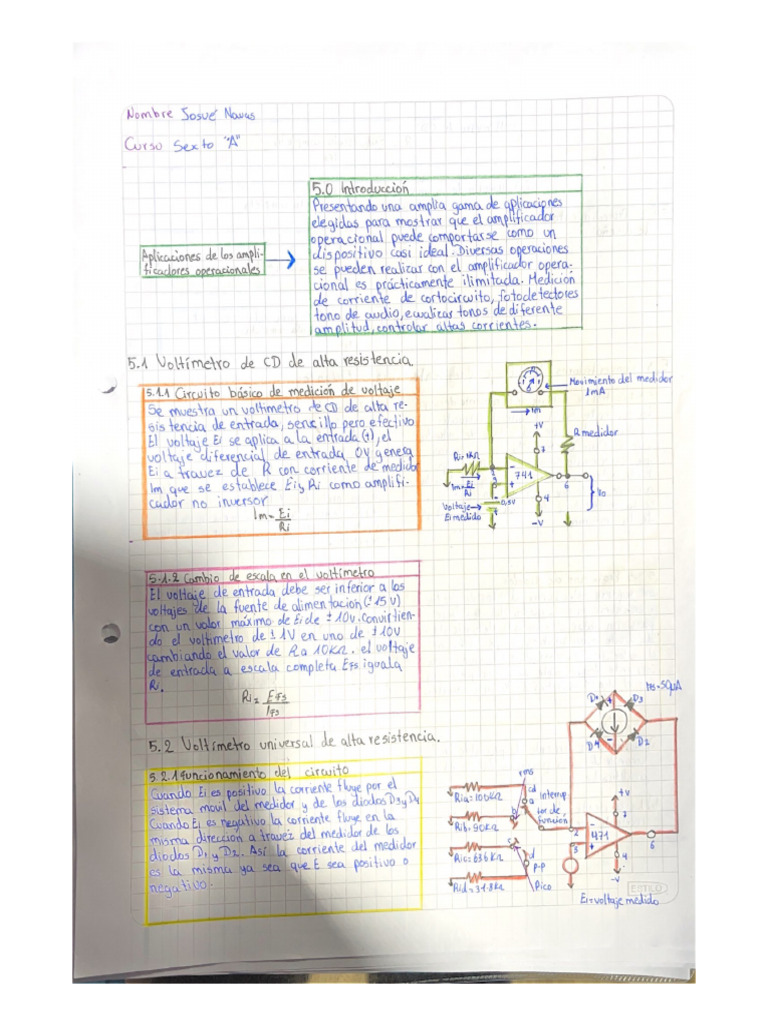 Nombre Josué Navas
Curso Sexto "A"
5.0 Introducción
Presentando una amplia gama de aplicaciones
elegidas para mostrar que el amplificador
operacional puede comportarse como un
dispositivo casi ideal. Diversas operaciones
se pueden realizar con el amplificador opera-
cional es prácticamente ilimitada. Medición
de corriente de cortocircuito, fotodetectores
tono de audio, ecualizar tonos de diferente
amplitud, controlar altas corrientes.
Aplicaciones de los ampli-
ficadores operacionales
5.1 Voltímetro de CD de alta resistencia
5.1.1 Circuito básico de medición de voltaje
Se muestra un voltimetro de CD de alta re-
sistencia de entrada, sencillo pero efectivo.
El voltaje Ei se aplica a la entrada (+), el
voltaje diferencial de entrada 0v genera
Ei a travez de R con corriente de medidor
Im que se establece Ei y Ri como amplifi-
cador no inversor
Im = Ei
Ri
Movimiento del medidor
1mA
Im
+V
R medidor
Ri=1KΩ
7
2
-
741
6
Im=Ei
Ri
3
+
0,5V
4
Vo
Voltaje
Ei medido
-V
5.1.2 Cambio de escala en el voltímetro
El voltaje de entrada debe ser inferior a los
voltajes de la fuente de alimentacion (±15 V)
con un valor máximo de Ei de ±10v. Convirtien-
do el voltimetro de ±1V en uno de ±10V
cambiando el valor de R a 10KΩ. el voltaje
de entrada a escala completa EFS iguala
Ri.
Ri = EFS
IFS
5.2 Voltímetro universal de alta resistencia.
5.2.1 Funcionamiento del circuito
Cuando Ei es positivo la corriente fluye por el
sistema movil del medidor y de los diodos D3 y D4
Cuando Ei es negativo la corriente fluye en la
misma dirección a travez del medidor de los
diodos D1 y D2. Así la corriente del medidor
es la misma ya sea que E sea positivo o
negativo.
IFS=50μA
D3
D4
D2
rms
cd
a
interrup
tor de
función
b
c
d
P-P
Pico
Ria=100KΩ
Rib=90KΩ
Ric=636KΩ
Rid=31.8KΩ
+V
7
2
-
471
6
3
+
4
-V
ESTILO
Ei=voltaje medido